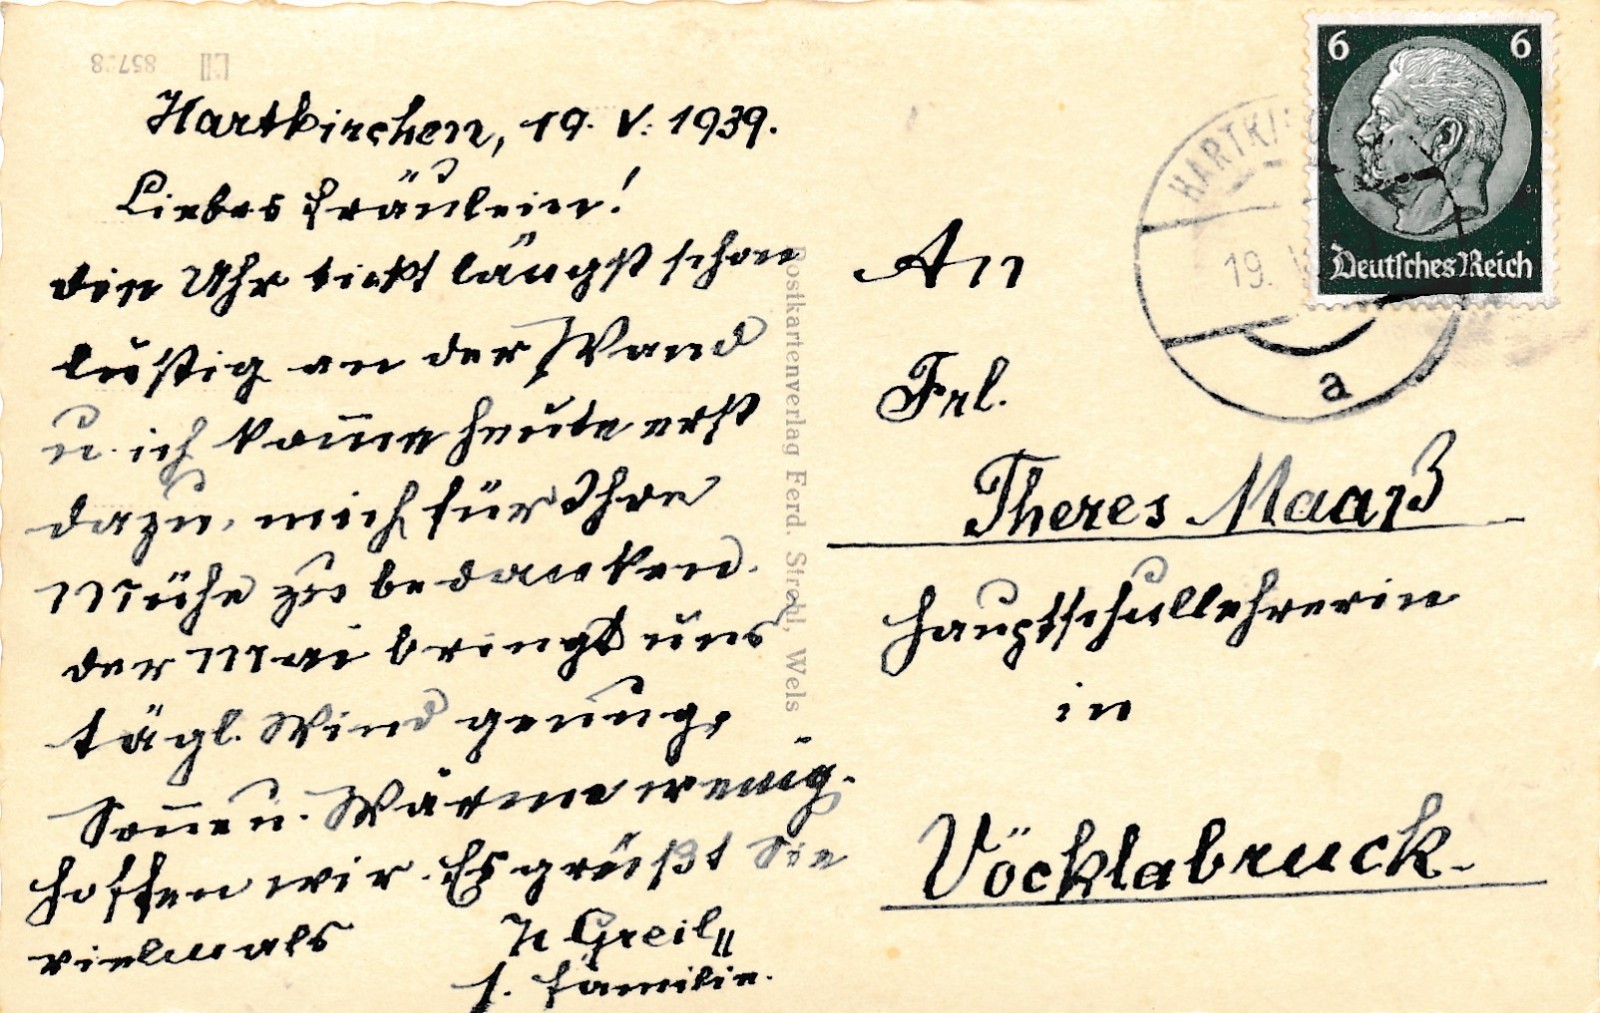 Hartkirchen, 19. V. 1939.
Liebes Fräulein!
die Uhr tickt längst schon
lustig an der Wand
u. ich komme heute erst
dazu, mich für Ihre
Mühe zu bedanken.
der Mai bringt uns
tägl. Wind genug,
Sonne u. Wärme wenig.
hoffen wir. Es grüßt Sie
vielmals
H Greil
s. Familie.
Postkartenverlag Ferd. Strohl, Wels
6
6
Deutsches Reich
HARTKI
19. V
a
An
Frl.
Theres Maaß
Hauptschullehrerin
in
Vöcklabruck.